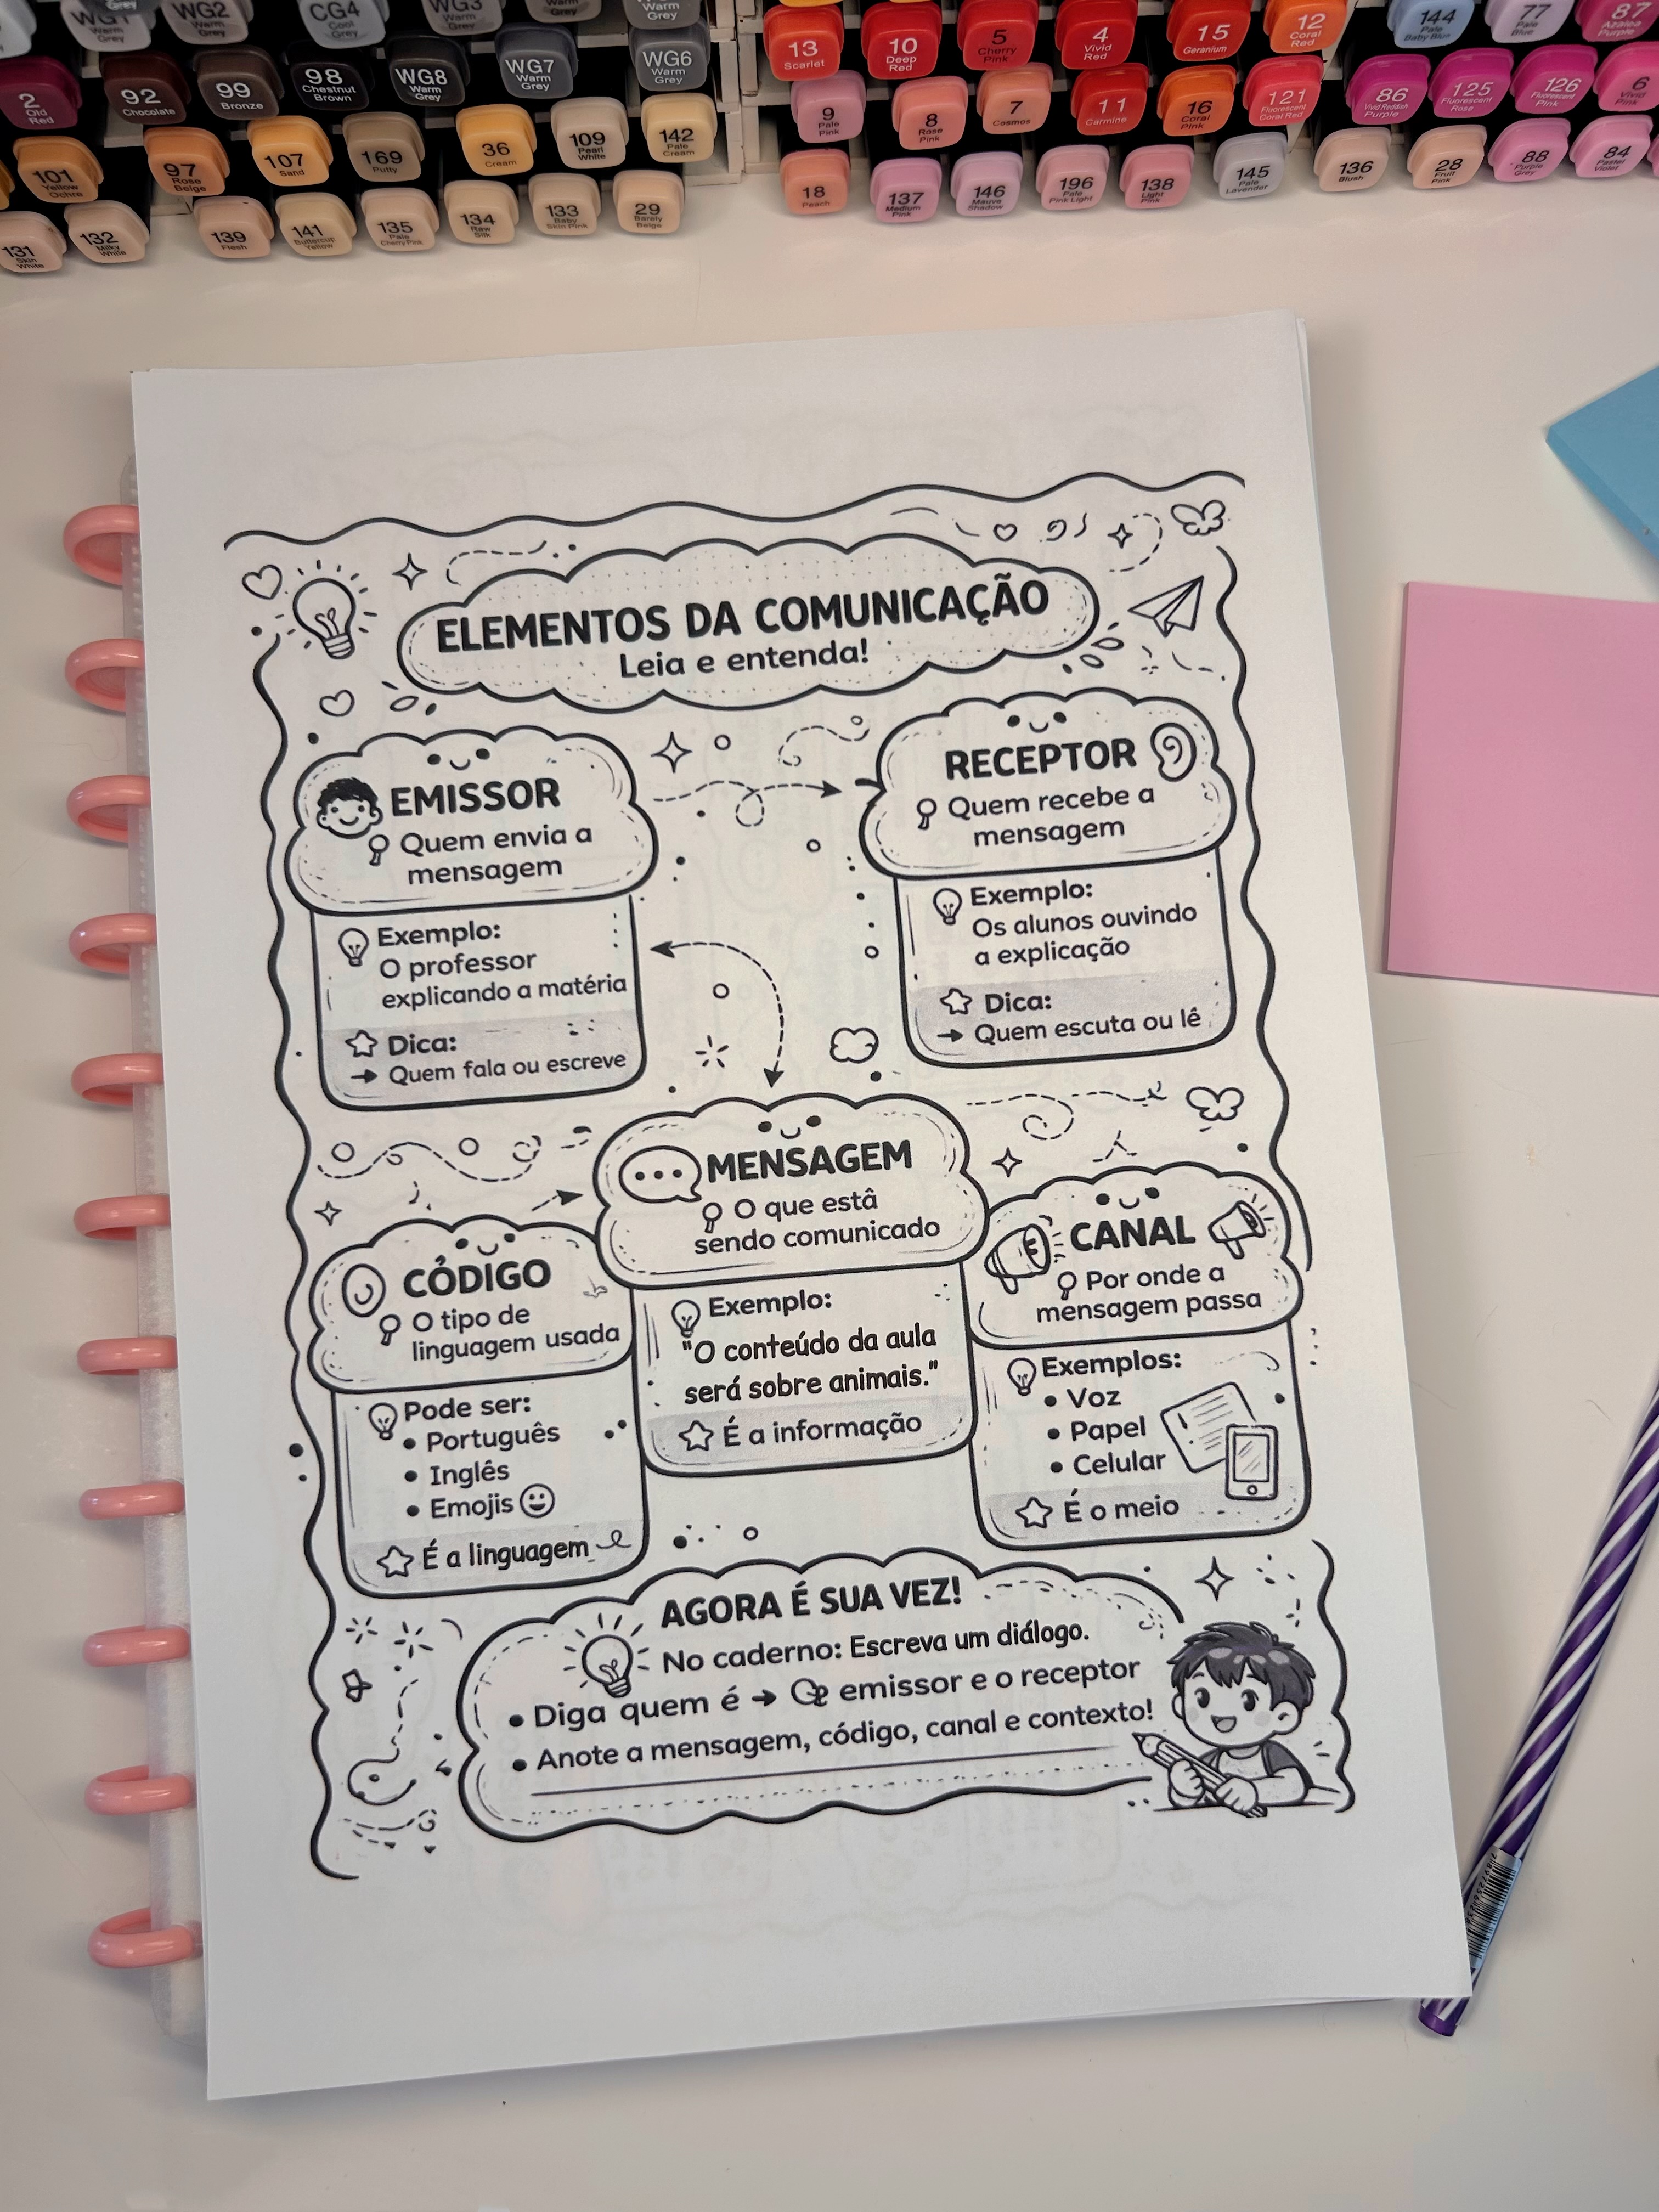 WG1
WG2
Warm Grey
CG4
Cool Grey
WG3
Warm Grey
Warm Grey
2
Old Red
92
Chocolate
99
Bronze
98
Chestnut Brown
WG8
Warm Grey
WG7
Warm Grey
WG6
Warm Grey
101
Yellow Ochre
97
Rose Beige
107
Sand
169
Putty
36
Cream
109
Pearl White
142
Pale Cream
131
Skin White
132
Milky White
139
Flesh
141
Buttercup Yellow
135
Pale Cherry Pink
134
Raw Silk
133
Baby Skin Pink
29
Barely Beige
13
Scarlet
10
Deep Red
5
Cherry Pink
4
Vivid Red
15
Geranium
12
Coral Red
144
Pale Baby Blue
77
Pale Blue
87
Azalea Purple
9
Pale Pink
8
Rose Pink
7
Cosmos
11
Carmine
16
Coral Pink
121
Fluorescent Coral Red
86
Vivid Reddish Purple
125
Fluorescent Rose
126
Fluorescent Pink
6
Vivid Pink
18
Peach
137
Medium Pink
146
Mauve Shadow
196
Pale Pink Light
138
Light Pink
145
Pale Lavender
136
Blush
28
Fruit Pink
88
Purple Grey
84
Pastel Violet
ELEMENTOS DA COMUNICAÇÃO
Leia e entenda!
EMISSOR
Quem envia a
mensagem
Exemplo:
O professor
explicando a matéria
Dica:
→ Quem fala ou escreve
RECEPTOR
Quem recebe a
mensagem
Exemplo:
Os alunos ouvindo
a explicação
Dica:
→ Quem escuta ou lê
MENSAGEM
O que está
sendo comunicado
Exemplo:
"O conteúdo da aula
será sobre animais."
É a informação
CÓDIGO
O tipo de
linguagem usada
Pode ser:
• Português
• Inglês
• Emojis
É a linguagem
CANAL
Por onde a
mensagem passa
Exemplos:
• Voz
• Papel
• Celular
É o meio
AGORA É SUA VEZ!
No caderno: Escreva um diálogo.
• Diga quem é → emissor e o receptor
• Anote a mensagem, código, canal e contexto!